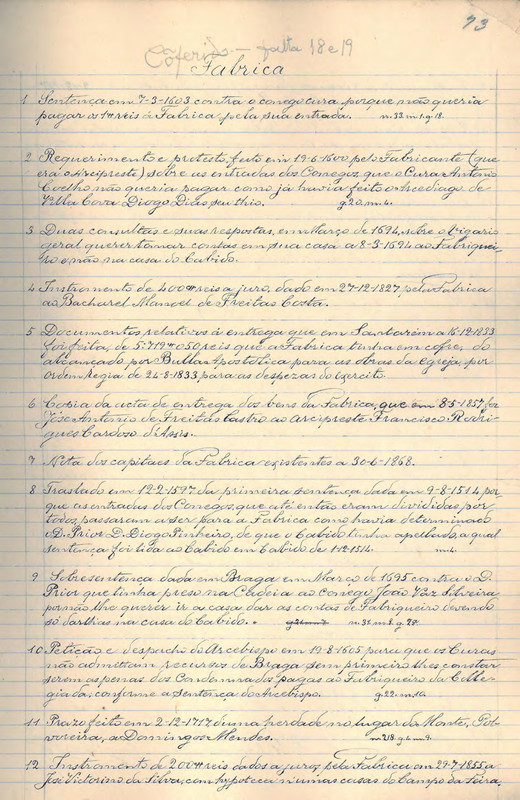 73
Coferido - falta 18 e 19
Fabrica
1 Sentença em 7-3-1603 contra o conego cura porque não queria
pagar os reis á Fabrica pela sua entrada. n. 33. m. 1. g. 18.
2 Requerimento e protesto, feito em 19-6-1600 pelo Fabricante (que
era o Arcipreste) sobre as entradas dos Conegos que o Cura Antonio
Coelho não queria pagar como já havia feito o Arcediago de
Villa Cova Diogo Dias seu thio. g. 20. m. 4.
3 Duas consultas e suas respostas, em Março de 1694, sobre o Vigario
geral querer tomar contas em sua casa a 8-3-1694 ao Fabriquei-
ro e não na casa do Cabido.
4 Instromento de 400 reis a juro, dado em 27-12-1827 pela Fabrica
ao Bacharel Manoel de Freitas Costa.
5 Documentos relativos á entrega que em Santarem a 16-12-1833
foi feita, de 5:719 050 reis que a Fabrica tinha em cofre, do
alcançado por Bulla Apostolica para as obras da egreja, por
ordem Regia de 24-8-1833, para as despezas do exercito.
6 Copia da acta de entrega dos bens da Fabrica, que em 8-5-1857 fez
José Antonio de Freitas Castro ao arcipreste Francisco Rodri-
gues Cardozo d'Assis.
7 Nota dos capitaes da Fabrica existentes a 30-6-1868.
8 Traslado em 12-2-1597 da primeira sentença dada em 9-8-1514, por
que as entradas dos Conegos, que até então eram divididas por
todos, passaram a ser para a Fabrica como havia determinado
o D. Prior D. Diogo Pinheiro, de que o Cabido tinha apellado, a qual
sentença foi lida ao Cabido em Cabido de 1-12-1514. m. 4.
9 Sobresentença dada em Braga em Março de 1695 contra o D.
Prior que tinha preso na Cadeia ao Conego João Vaz Silveira
por não lhe querer ir a casa dar as contas de Fabriqueiro devendo
só dar-lhas na casa do Cabido. m. 8. g. 27.
10 Petição e despacho do Arcebispo em 19-8-1605 para que os Curas
não admittam recursos de Braga sem primeiro lhes constar
serem as penas dos Condemnados pagas ao Fabriqueiro da Colle-
giada, conforme a Sentença do Arcebispo. g. 22. m. 10.
11 Prazo feito em 2-12-1717 d'uma herdade no lugar da Monte, Pol-
voreira, a Domingos Mendes. n. 218 g. 4. m. 9.
12 Instromento de 200 reis dados a juro, pela Fabrica em 29-7-1855 a
José Victorino da Silva, com hypoteca n'umas casas do Campo da Feira.